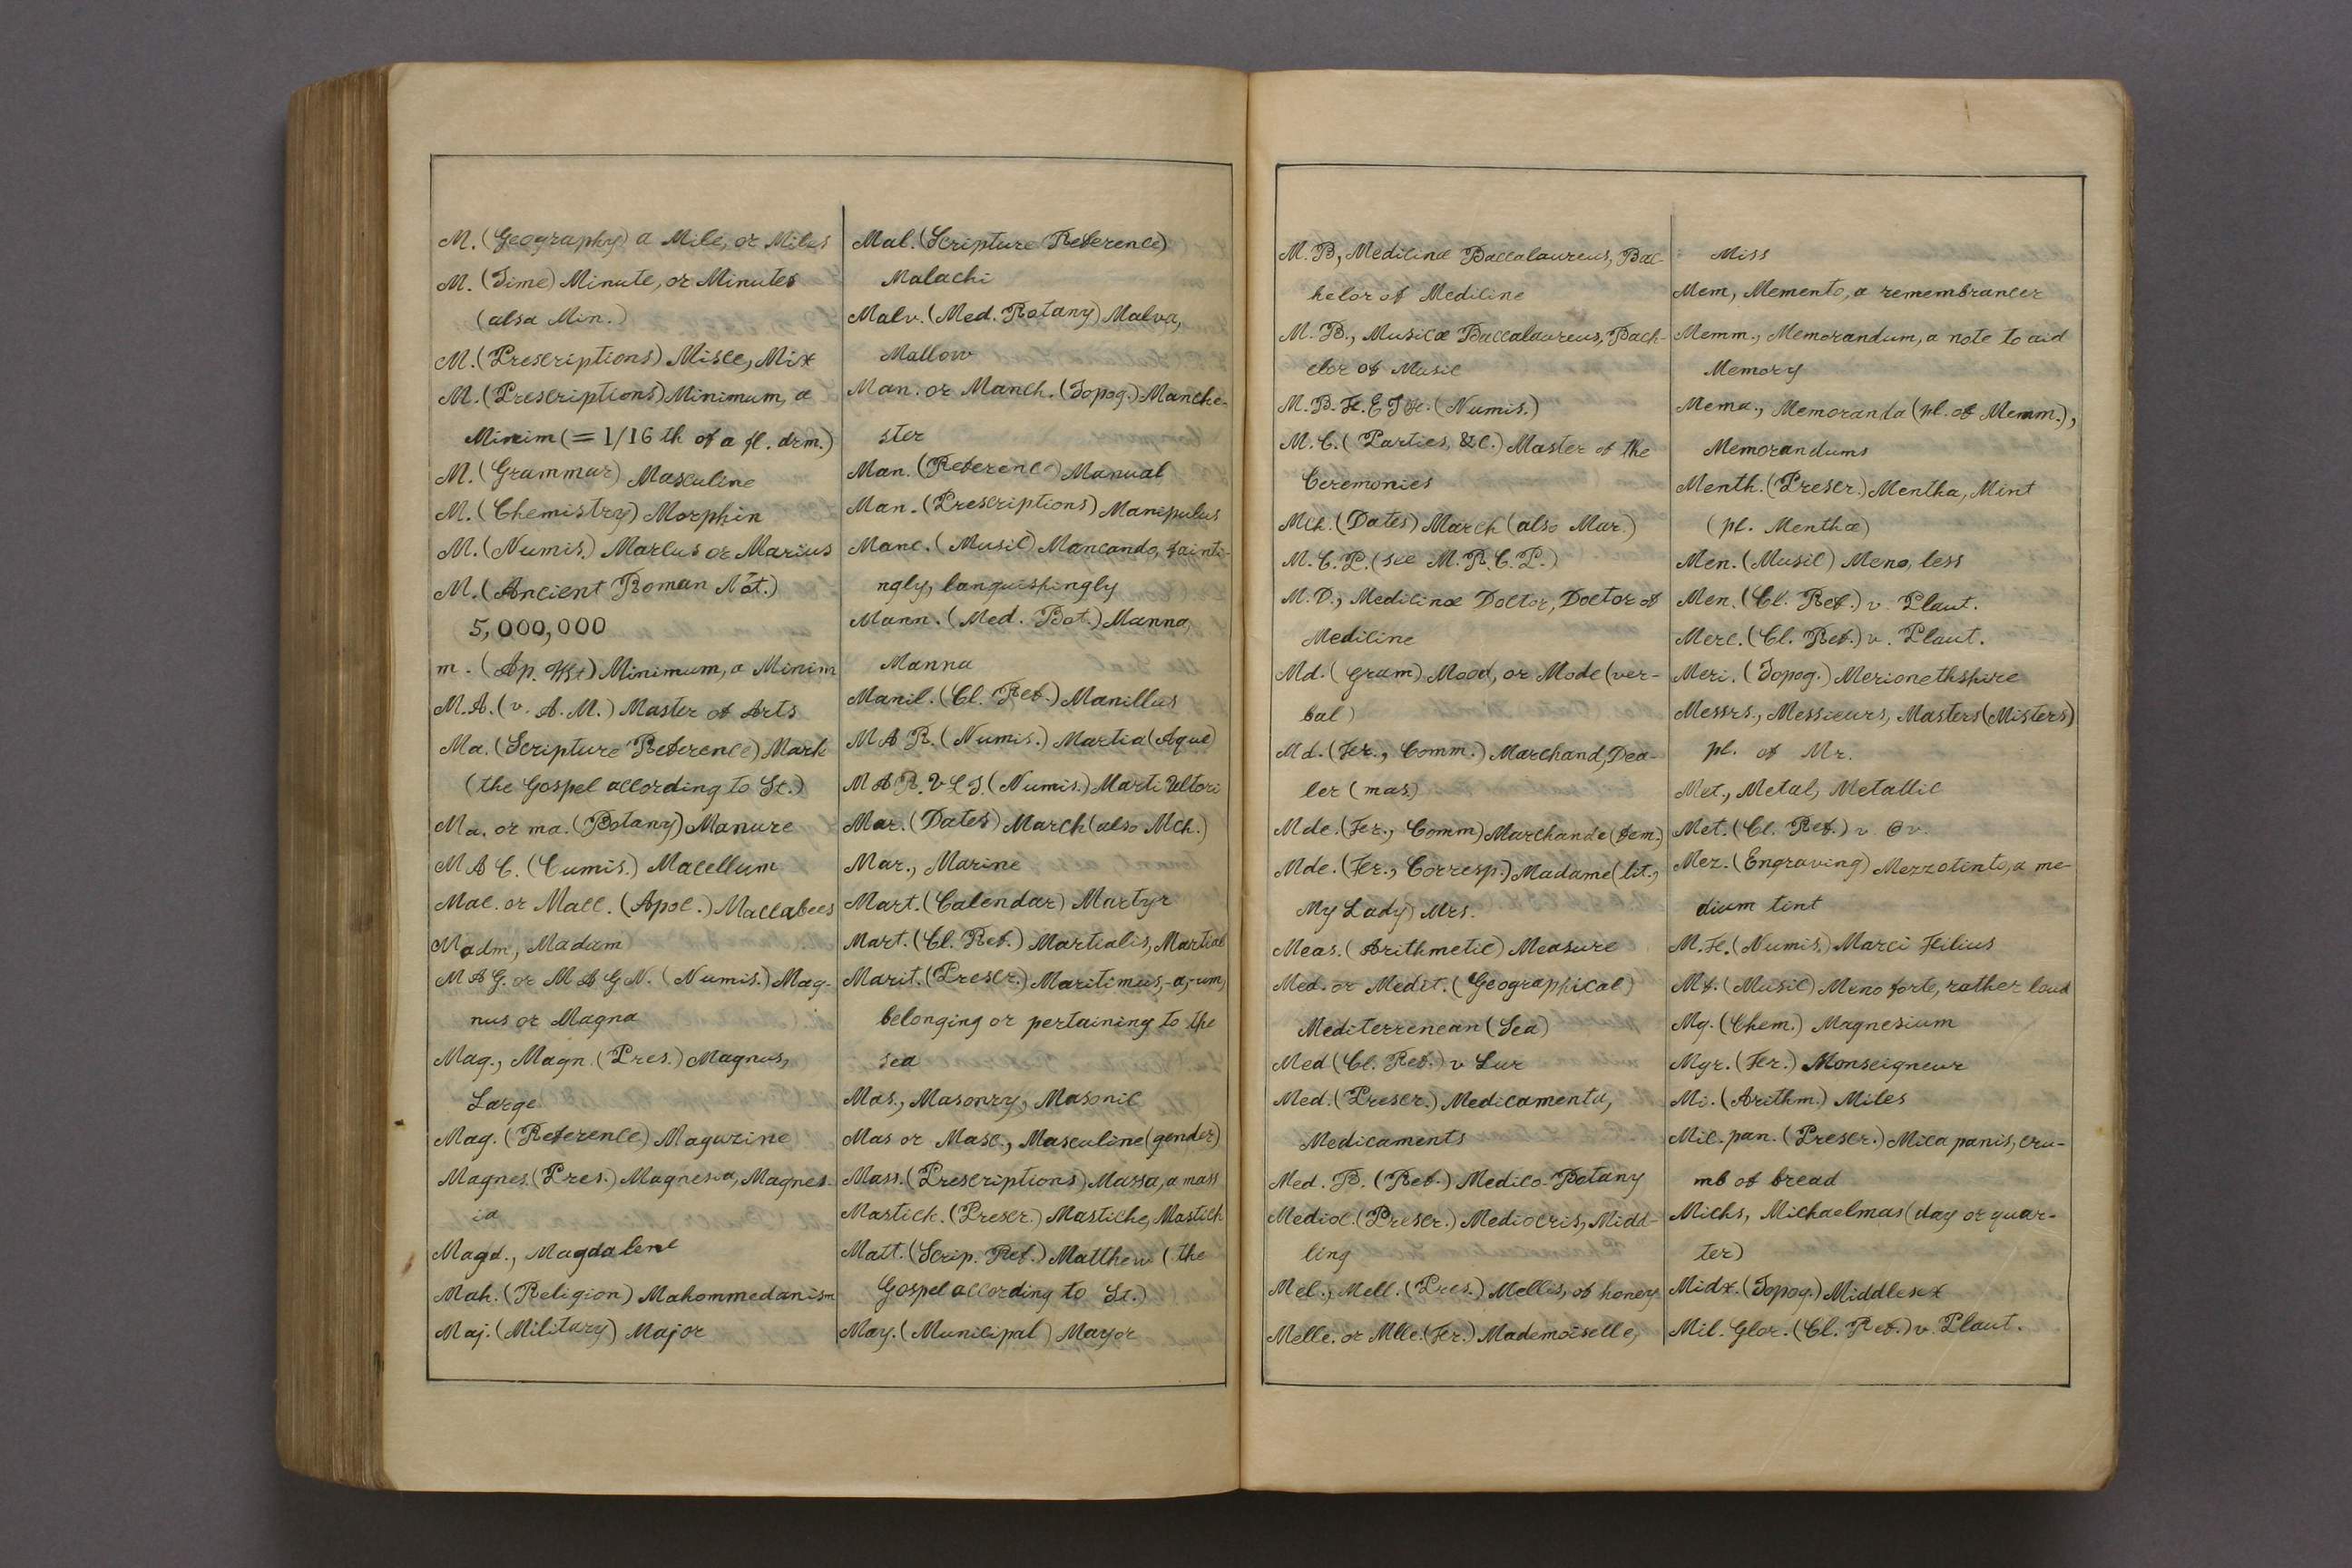 M. (Geography) a Mile, or Miles
M. (Time) Minute, or Minutes
(also Min.)
M. (Prescriptions) Misce, Mix
M. (Prescriptions) Minimum, a
Minim (= 1/16 th of a fl. drm.)
M. (Grammar) Masculine
M. (Chemistry) Morphin
M. (Numis.) Marcus or Marius
M. (Ancient Roman Not.)
5,000,000
m. (Ap. Wt) Minimum, a Minim
M.A. (v. A.M.) Master of Arts
Ma. (Scripture Reference) Mark
(the Gospel according to St.)
Ma. or ma. (Botany) Manure
M A C. (Cumis.) Macellum
Mac. or Macc. (Apoc.) Maccabees
Madm, Madam
M A G. or M A G N. (Numis.) Mag-
nus or Magna
Mag., Magn. (Pres.) Magnus,
Large
Mag. (Reference) Magazine
Magnes. (Pres.) Magnesia, Magnes-
ia
Magd., Magdalene
Mah. (Religion) Mahommedanism
Maj. (Military) Major
Mal. (Scripture Reference)
Malachi
Malv. (Med. Botany) Malva,
Mallow
Man. or Manch. (Topog.) Manche-
ster
Man. (Reference) Manual
Man. (Prescriptions) Manipulus
Manc. (Music) Mancando, fainti-
ngly, languishingly
Mann. (Med. Bot.) Manna,
Manna
Manil. (Cl. Ref.) Manillus
M A R. (Numis.) Martia (Aque)
M A R. V L T. (Numis.) Marti Ultori
Mar. (Dates) March (also Mch.)
Mar., Marine
Mart. (Calendar) Martyr
Mart. (Cl. Ref.) Martialis, Martial
Marit. (Prescr.) Maritimus, -a, -um,
belonging or pertaining to the
sea
Mas., Masonry, Masonic
Mas or Masc., Masculine (gender)
Mass. (Prescriptions) Massa, a mass
Mastich. (Prescr.) Mastiche, Mastich
Matt. (Scrip. Ref.) Matthew (the
Gospel according to St.)
May. (Municipal) Mayor
M. B, Medicinæ Baccalaureus, Bac-
helor of Medicine
M. B., Musicæ Baccalaureus, Bach-
elor of Music
M. B. F. E T F. (Numis.)
M. C. (Parties, &c.) Master of the
Ceremonies
Mch. (Dates) March (also Mar.)
M. C. P. (see M. R. C. P.)
M. D., Medicinæ Doctor, Doctor of
Medicine
Md. (Gram) Mood, or Mode (ver-
bal)
Md. (Fr., Comm.) Marchand, Dea-
ler (mas.)
Mde. (Fr., Comm) Marchande (fem.)
Mde. (Fr., Corresp.) Madame (lit.,
My Lady) Mrs.
Meas. (Arithmetic) Measure
Med. or Medit. (Geographical)
Mediterrenean (Sea)
Med (Cl. Ref.) v Eur
Med. (Prescr.) Medicamenta,
Medicaments
Med. B. (Ref.) Medico-Botany
Medioc. (Prescr.) Mediocris, Midd-
ling
Mel., Mell. (Pres.) Mellis, of honey
Melle. or Mlle. (Fr.) Mademoiselle,
Miss
Mem, Memento, a remembrancer
Memm., Memorandum, a note to aid
Memory
Mema., Memoranda (pl. of Memm.),
Memorandums
Menth. (Prescr.) Mentha, Mint
(pl. Menthæ)
Men. (Music) Meno, less
Men. (Cl. Ref.) v. Plaut.
Merc. (Cl. Ref.) v. Plaut.
Meri. (Topog.) Merionethshire
Messrs., Messieurs, Masters (Misters)
pl. of Mr.
Met., Metal, Metallic
Met. (Cl. Ref.) v. Ov.
Mez. (Engraving) Mezzotinto, a me-
dium tint
M. F. (Numis.) Marci Filius
Mf. (Music) Meno forte, rather loud
Mg. (Chem.) Magnesium
Mgr. (Fr.) Monseigneur
Mi. (Arithm.) Miles
Mic. pan. (Prescr.) Mica panis, cru-
mb of bread
Michs, Michaelmas (day or quar-
ter)
Midx. (Topog.) Middlesex
Mil. Glor. (Cl. Ref.) v. Plaut.